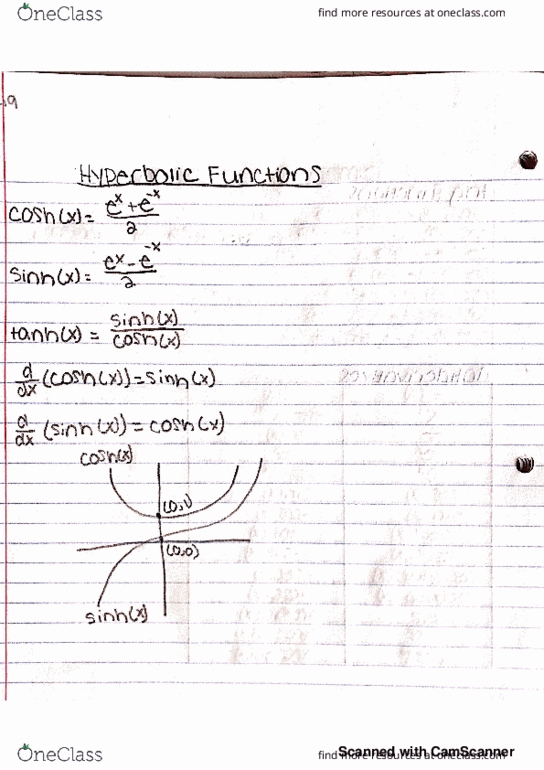 OneClass
find more resources at oneclass.com
Hyperbolic Functions
cosh(x) = (e^x + e^-x)/2
sinh(x) = (e^x - e^-x)/2
tanh(x) = sinh(x)/cosh(x)
d/dx (cosh(x)) = sinh(x)
d/dx (sinh(x)) = cosh(x)
cosh(x)
(0,1)
(0,0)
sinh(x)
OneClass
find more resources at oneclass.com
Scanned with CamScanner